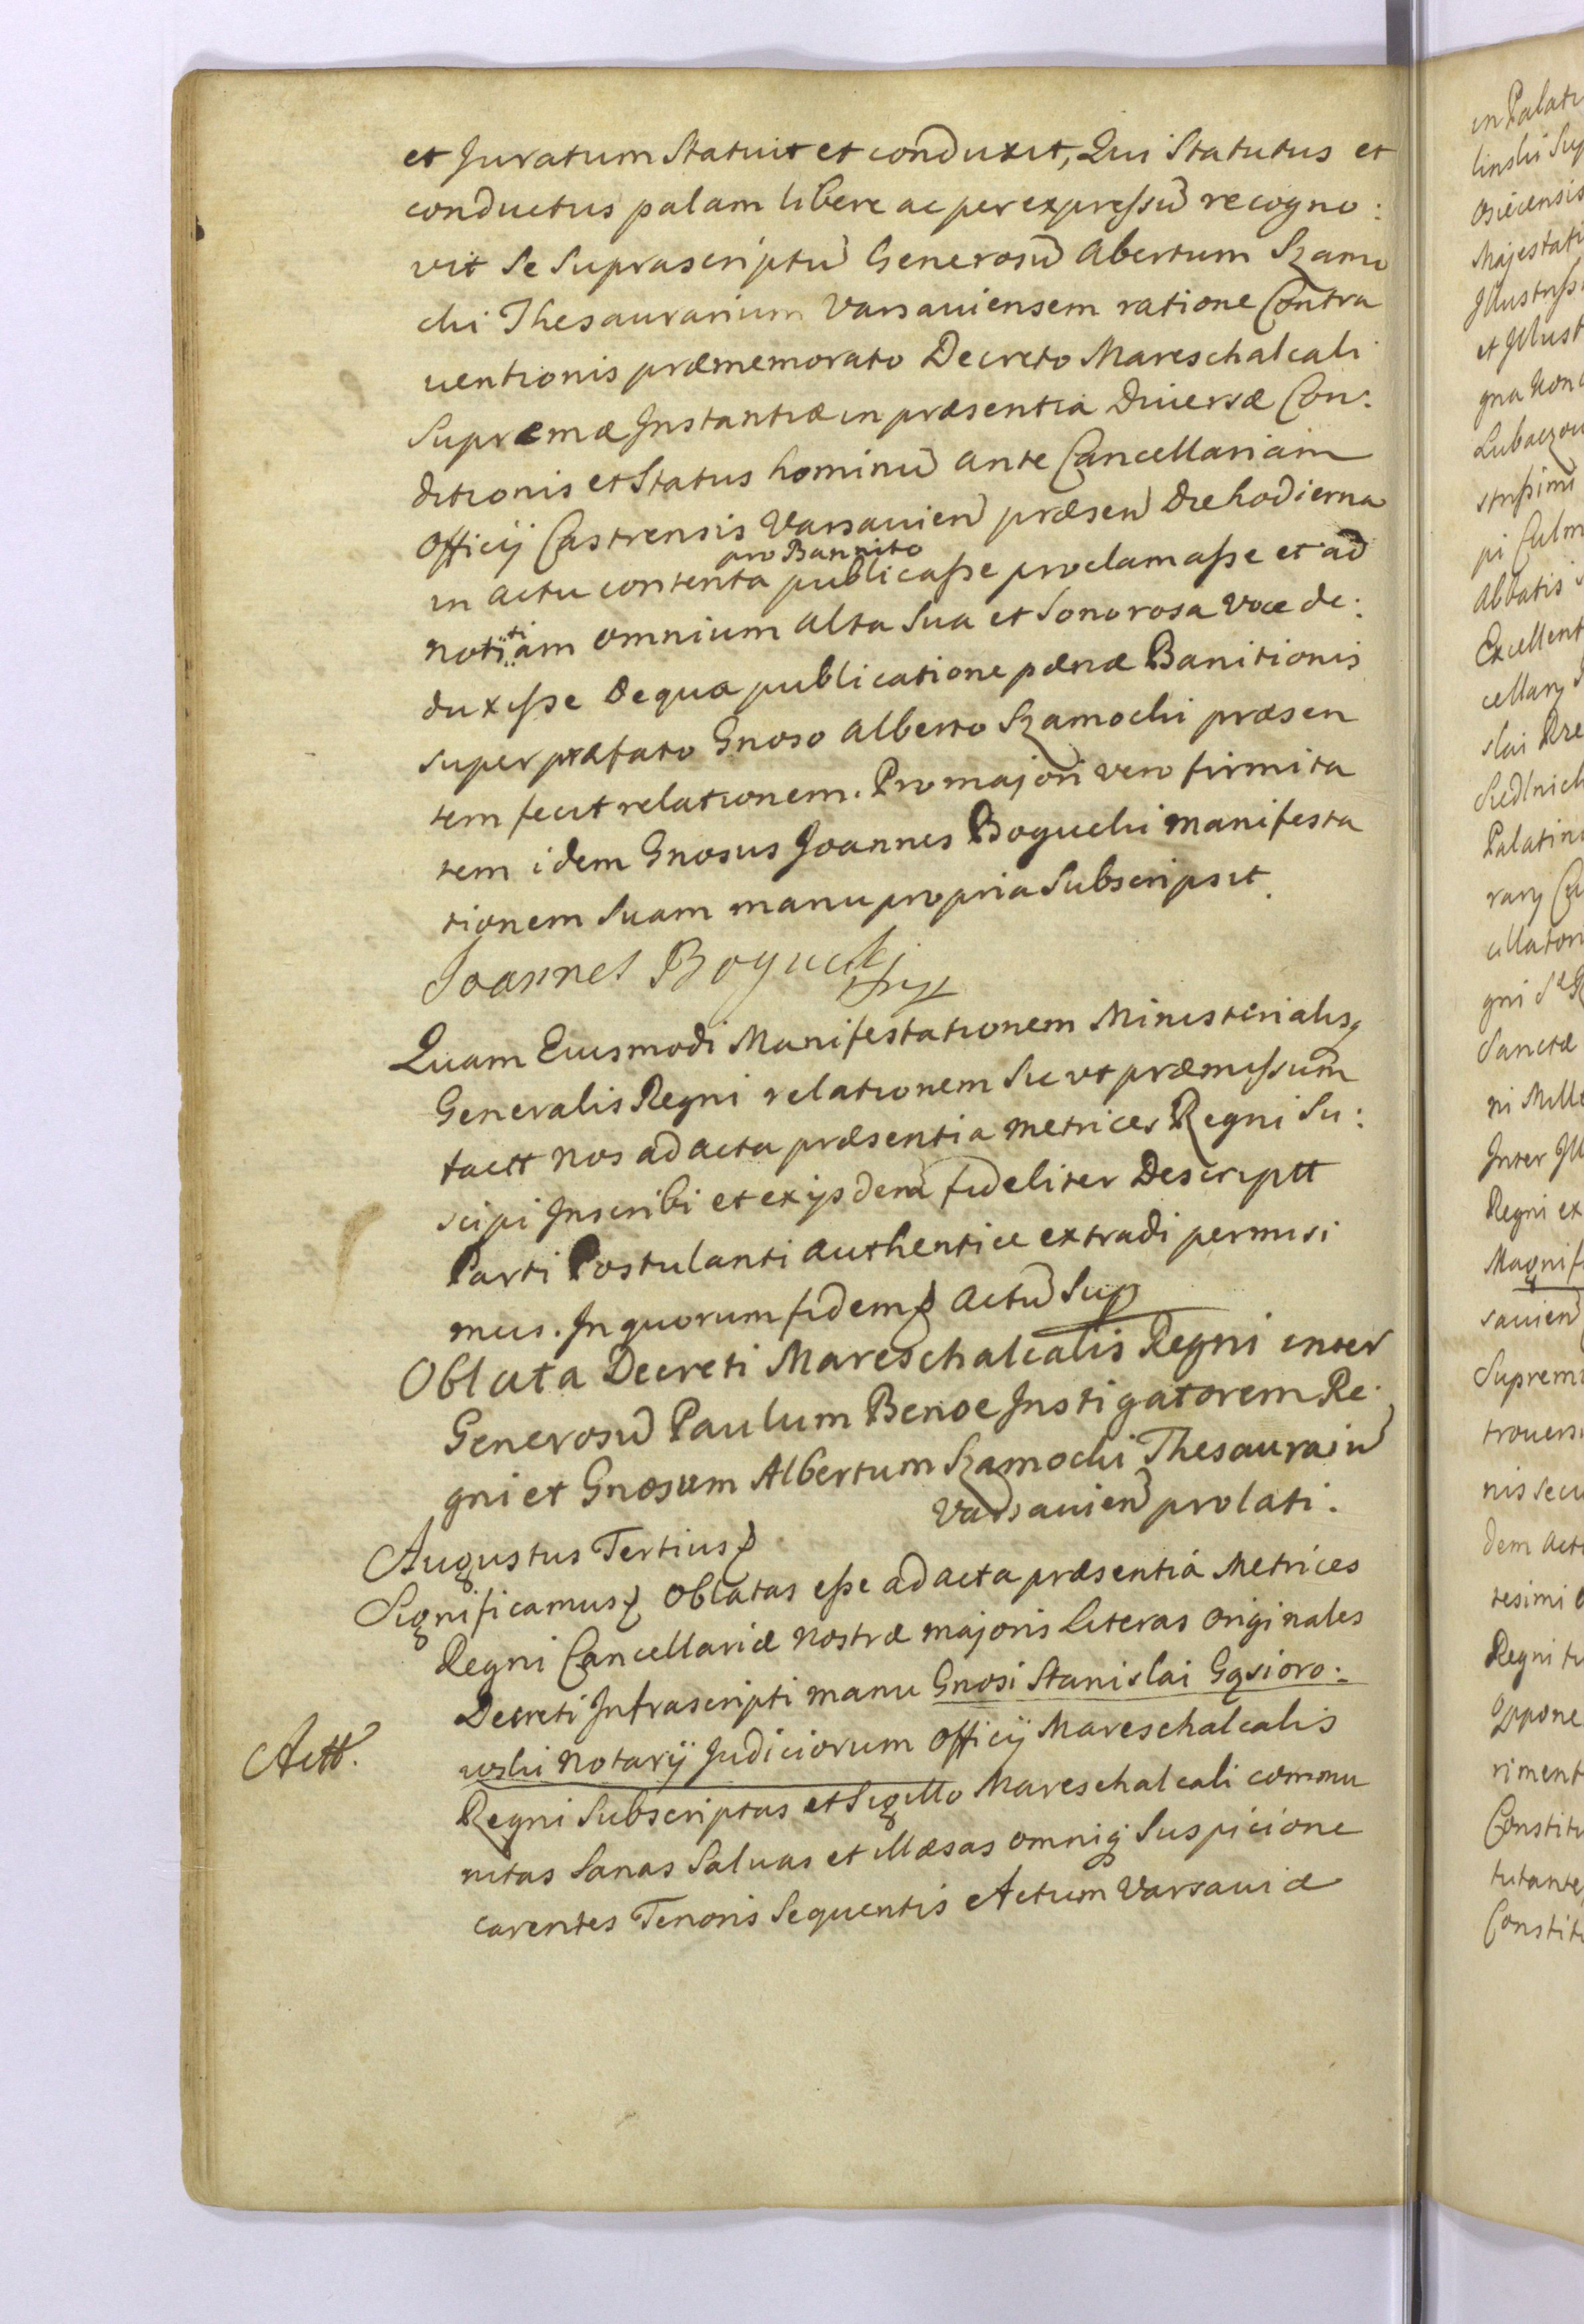 et Juratum Statuit et conduxit, Qui Statutus et
conductus palam libere ac per expressũ recogno:
vit Se Suprascriptũ Generosũ Abertum Szamo
cki Thesaurarium Varsauiensem ratione Contra
uentionis præmemorato Decreto Mareschalcali
Supremæ Instantiæ in præsentia Diuersæ Con:
ditionis et Status hominũ ante Cancellariam
Officij Castrensis Varsauien præsen Die hodierna
pro Bannito
in actu contenta publicasse proclamasse et ad
notitiam omnium alta Sua et Sonorosa voce de:
duxisse De qua publicatione pænæ Banitionis
super præfato Gnoso Alberto Szamocki præsen
tem fecit relationem. Pro majori vero firmita
tem idem Gnosus Joannes Bogucki manifesta
tionem Suam manu propria Subscripsit.
Joannes Bogucki
Quam Eiusmodi Manifestationem Ministerialisq
Generalis Regni relationem Sic vt præmissum
factt nos ad acta præsentia metrices Regni Su:
scipi Inscribi et ex ijsdem fideliter Descriptt
Parti Postulanti authentice extradi permisi
mus. In quorum fidem Actũ Sup
Oblata Decreti Mareschalcalis Regni inter
Generosũ Paulum Benoe Instigatorem Re:
gni et Gnosum Albertum Szamocki Thesauraiũ
Varsauien prolati.
Augustus Tertius
Significamus Oblatas esse ad acta præsentia Metrices
Regni Cancellariæ nostræ majoris Literas originales
Decreti Infrascripti manu Gnosi Stanislai Gąsioro:
wski Notarij Judiciorum Officij Mareschalcalis
Actt.
Regni Subscriptas et Sigillo Mareschalcali commu
nitas Sanas Saluas et illæsas omniq Suspicione
carentes Tenoris Sequentis Actum Varsauiæ
in Palati
linski Sup
osiecensis
Majestati
et Illust
gna
Lubaczow
strissimi
pi Culm
Abbatis
Excellent
Palatin
gni
Sanctæ
ni Mille
Inter Ill
Regni ex
Magnif
sauien
Suprem
trouersi
nis secu
dem acto
tesimi o
Regni
riment
Constitu
tutante
Constitu